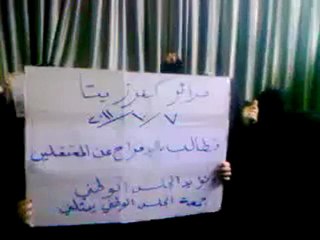 حرائر كفرزيتا
٧ / ١٠ / ٢٠١١
نطالب بالإفراج عن المعتقلين
نؤيد المجلس الوطني
جمعة المجلس الوطني يمثلني